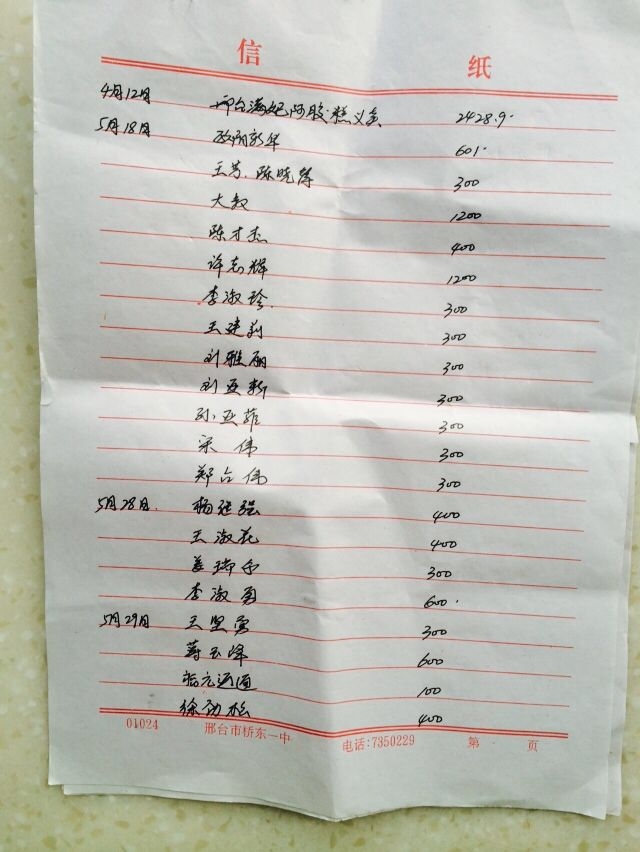 信 纸
4月12日 邢台 阿胶糕义卖 2428.9.
5月18日 新华 601.
王芳.陈晓 300
大叔 1200
陈才杰 400
许志辉 1200
李淑珍. 300
王建莉 300
刘雅丽 300
刘亚新 300
孙亚菲 300
宋伟 300
郑占伟 300
5月28日. 杨延强 400
王淑花 400
姜瑞 300
李淑勇 600.
5月29日 王坚勇 300
蒋玉峰 600
100
徐劲松 400
01024 邢台市桥东一中 电话:7350229 第 页